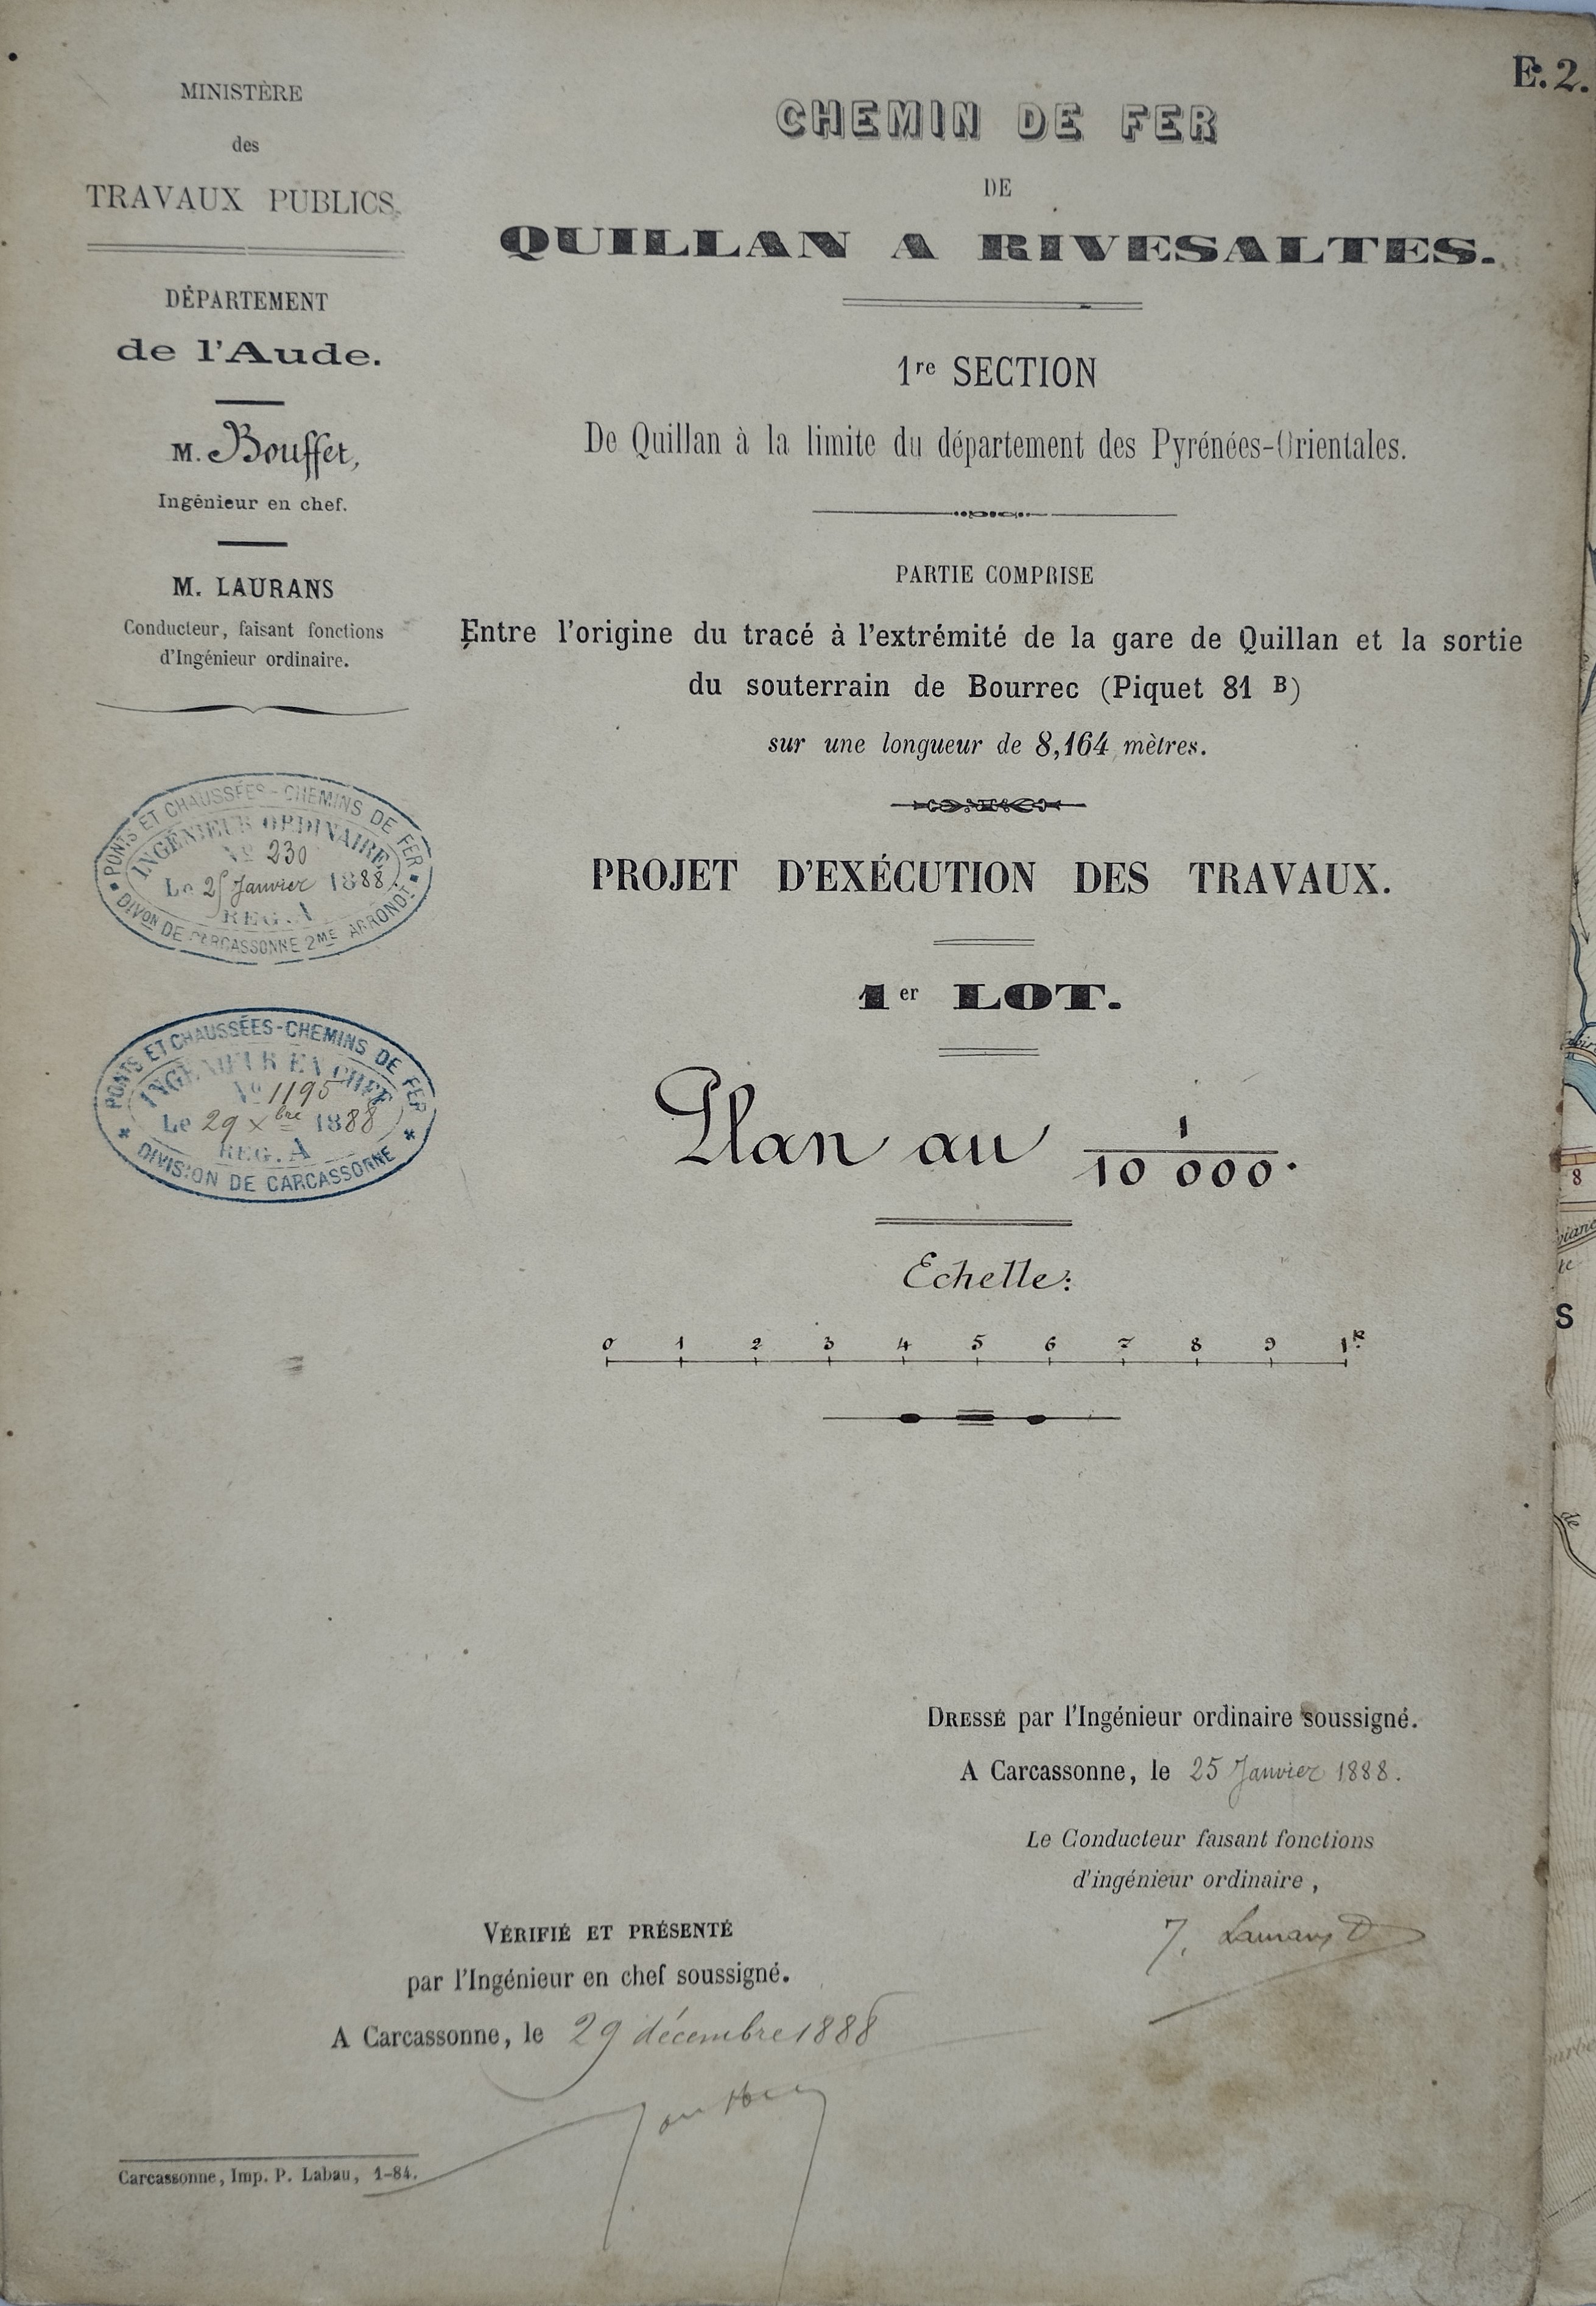 E. 2.
MINISTÈRE
des
TRAVAUX PUBLICS.
DÉPARTEMENT
de l'Aude.
M. Bouffet,
Ingénieur en chef.
M. LAURANS
Conducteur, faisant fonctions
d'Ingénieur ordinaire.
PONTS ET CHAUSSÉES - CHEMINS DE FER
INGÉNIEUR ORDINAIRE
Nº 230
Le 25 Janvier 1888
REG. A
DIVON DE CARCASSONNE 2ME ARRONDT
PONTS ET CHAUSSÉES - CHEMINS DE FER
INGÉNIEUR EN CHEF
Nº 1195
Le 29 Xbre 1888
REG. A
DIVISION DE CARCASSONNE
CHEMIN DE FER
DE
QUILLAN A RIVESALTES.
1re SECTION
De Quillan à la limite du département des Pyrénées-Orientales.
PARTIE COMPRISE
Entre l'origine du tracé à l'extrémité de la gare de Quillan et la sortie
du souterrain de Bourrec (Piquet 81 B)
sur une longueur de 8,164 mètres.
PROJET D'EXÉCUTION DES TRAVAUX.
1er LOT.
Plan au 1/10 000.
Echelle:
0 1 2 3 4 5 6 7 8 9 1k.
DRESSÉ par l'Ingénieur ordinaire soussigné.
A Carcassonne, le 25 Janvier 1888.
Le Conducteur faisant fonctions
d'ingénieur ordinaire,
J. Laurans
VÉRIFIÉ ET PRÉSENTÉ
par l'Ingénieur en chef soussigné.
A Carcassonne, le 29 décembre 1888
Carcassonne, Imp. P. Labau, 1-84.
8
S
de